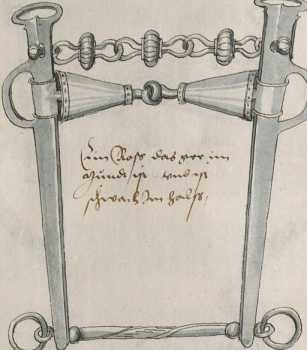 Ein Ross das ger im
Mundt ist vnd ist
schwach Im halss,